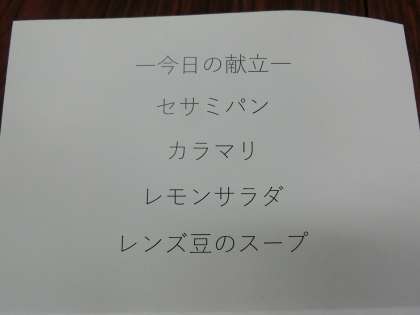 ―今日の献立―
セサミパン
カラマリ
レモンサラダ
レンズ豆のスープ